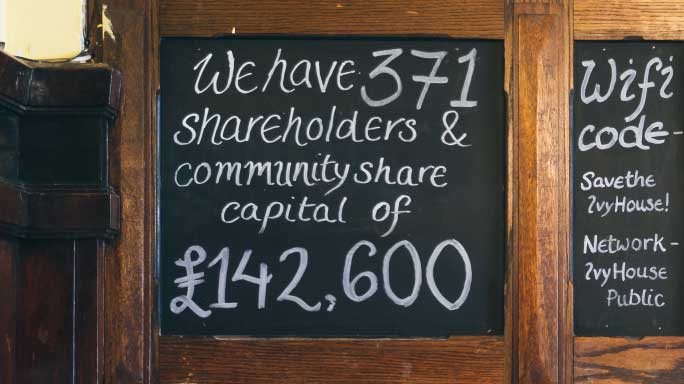 We have 371
shareholders &
community share
capital of
£142,600
Wifi
code-
Save the
IvyHouse!
Network-
IvyHouse
Public